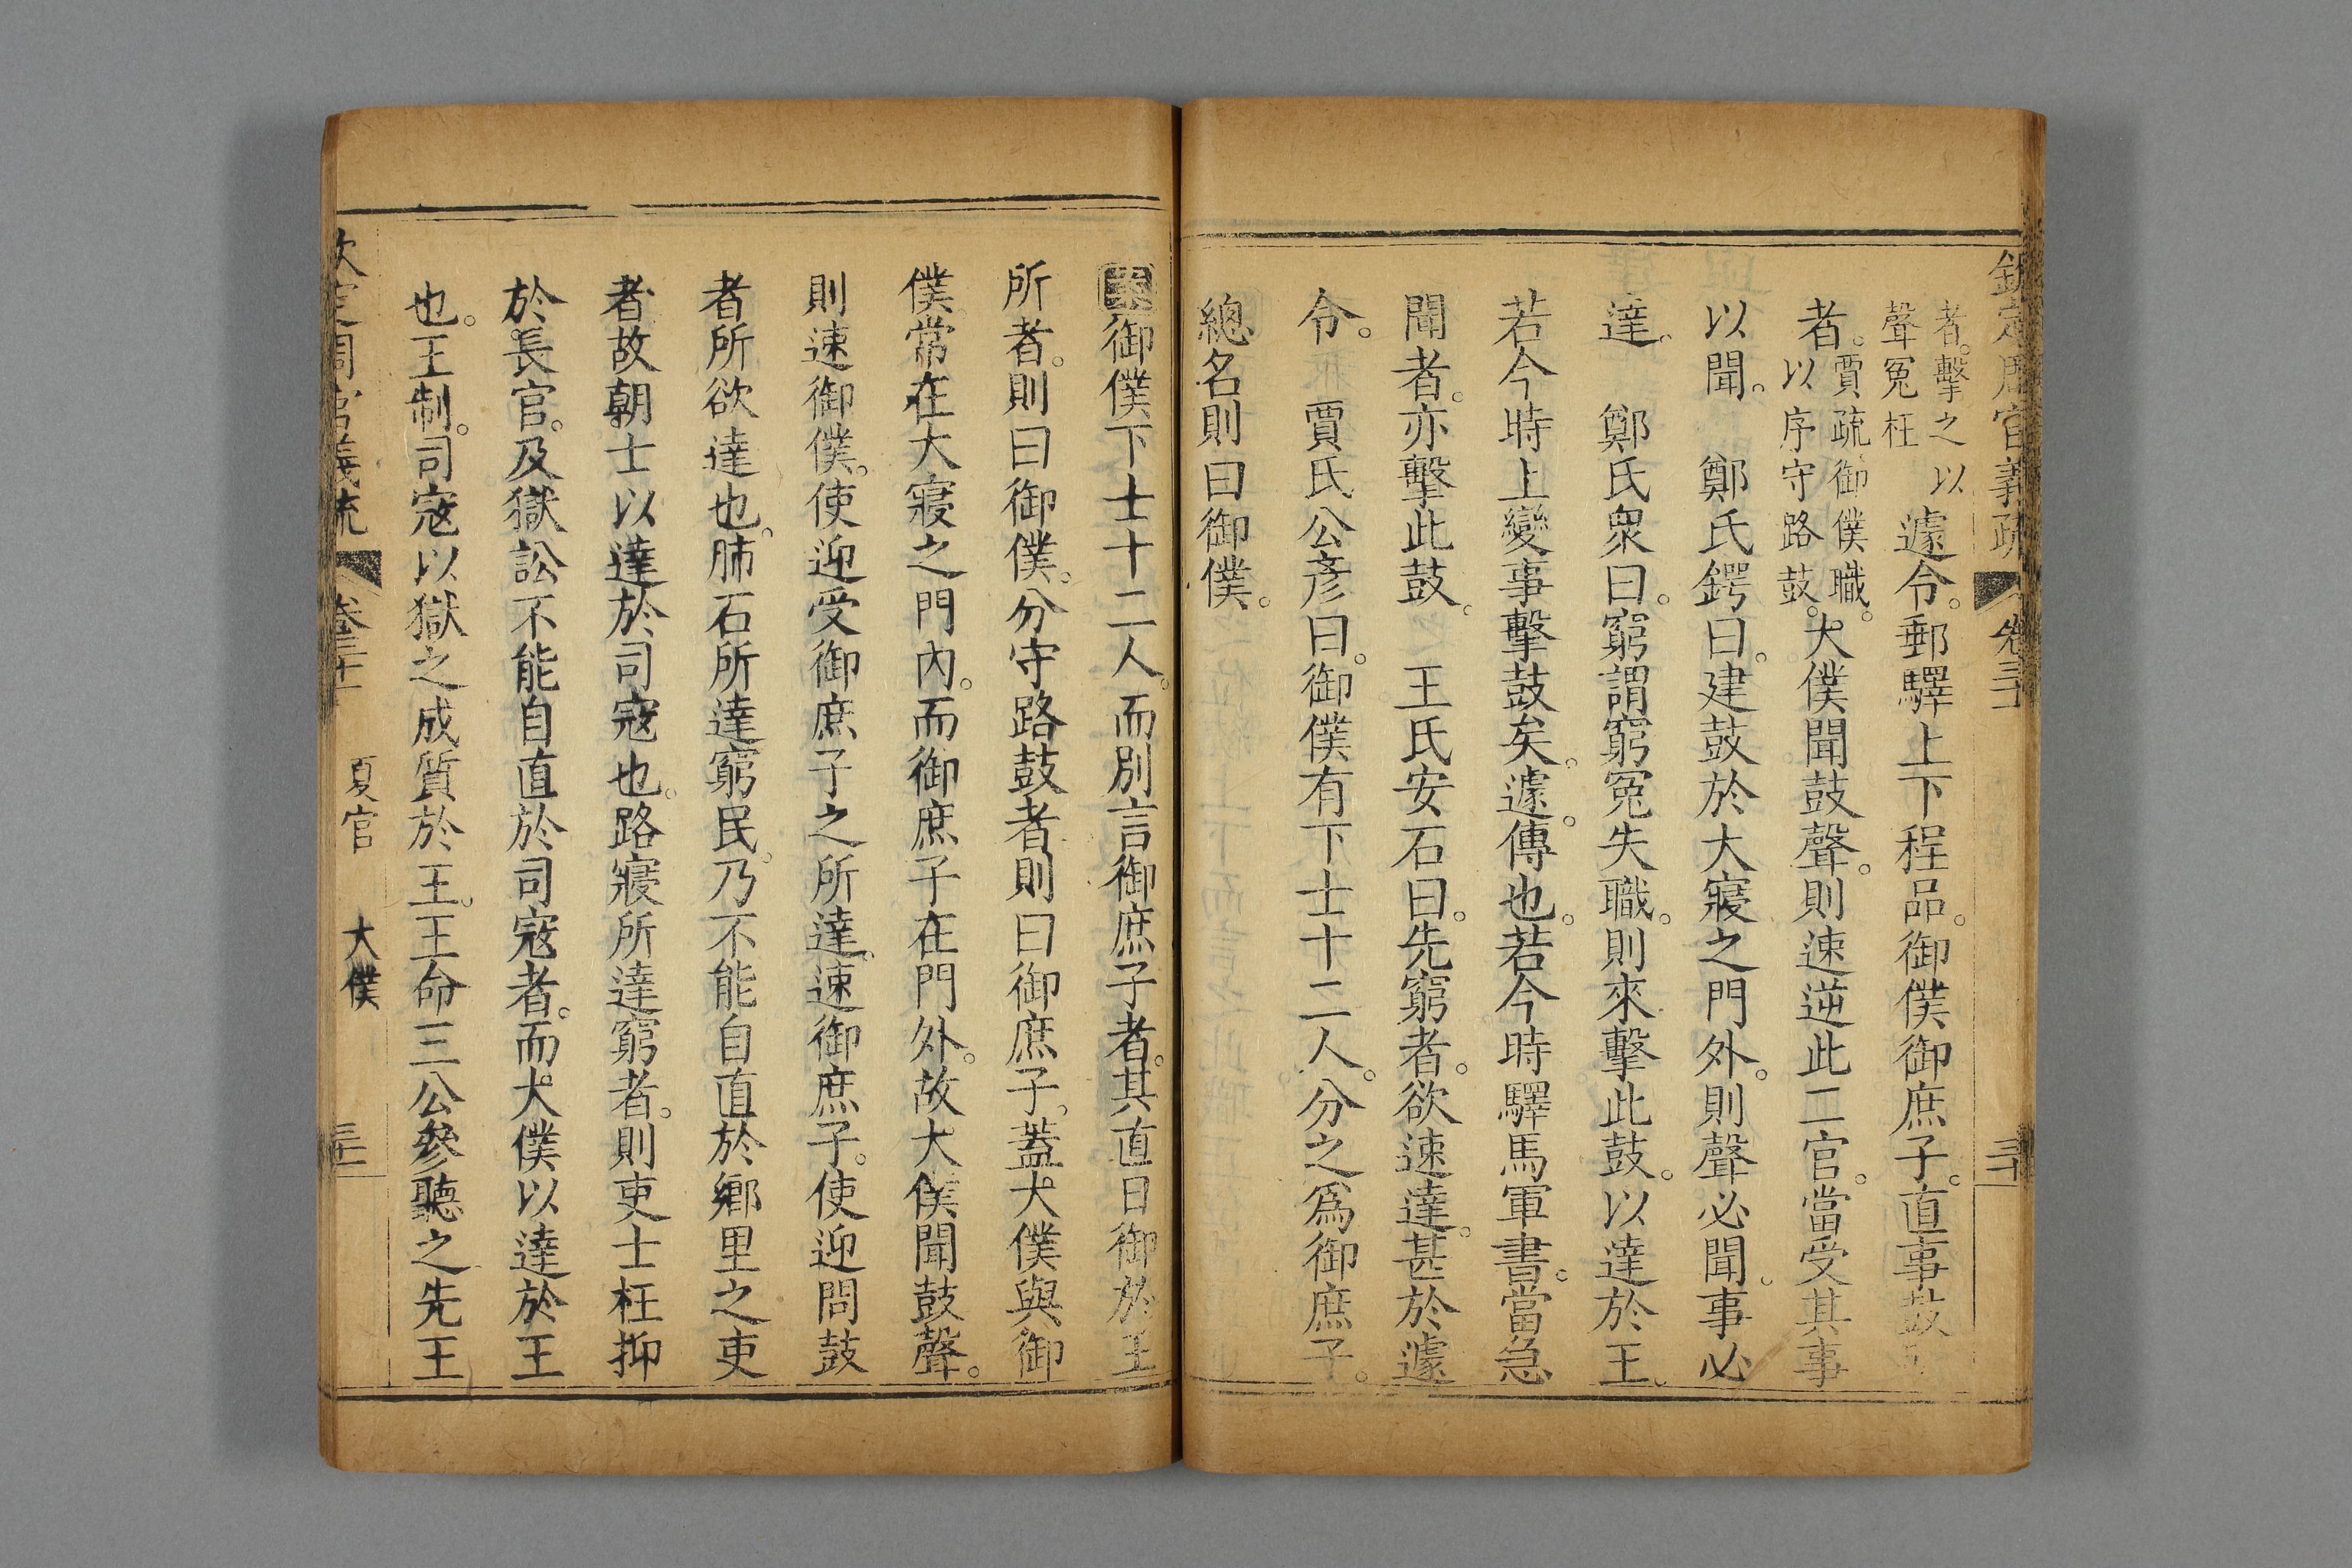 欽定周官義疏 卷三十 三十
者。擊之以
聲冤枉
遽令。郵驛上下程品。御僕御庶子。直事鼓
者。
賈疏御僕職。
以序守路鼓。
大僕聞鼓聲。則速逆此二官。當受其事
以聞。 鄭氏鍔曰。建鼓於大寢之門外。則聲必聞。事必
達。 鄭氏衆曰。窮謂窮冤失職。則來擊此鼓。以達於王。
若今時上變事擊鼓矣。遽。傳也。若今時驛馬軍書。當急
聞者。亦擊此鼓。 王氏安石曰。先窮者。欲速達。甚於遽
令。 賈氏公彥曰。御僕有下士十二人。分之爲御庶子。
總名則曰御僕。
案御僕下士十二人。而別言御庶子者。其直日御於王
所者。則曰御僕。分守路鼓者則曰御庶子。蓋大僕與御
僕常在大寢之門內。而御庶子在門外。故大僕聞鼓聲。
則速御僕。使迎受御庶子之所達。速御庶子。使迎問鼓
者所欲達也。肺石所達窮民。乃不能自直於鄉里之吏
者故朝士以達於司寇也。路寢所達窮者。則吏士枉抑
於長官。及獄訟不能自直於司寇者。而大僕以達於王
也。王制。司寇以獄之成質於王。王命三公參聽之先王
欽定周官義疏 卷三十 夏官 大僕 三十一